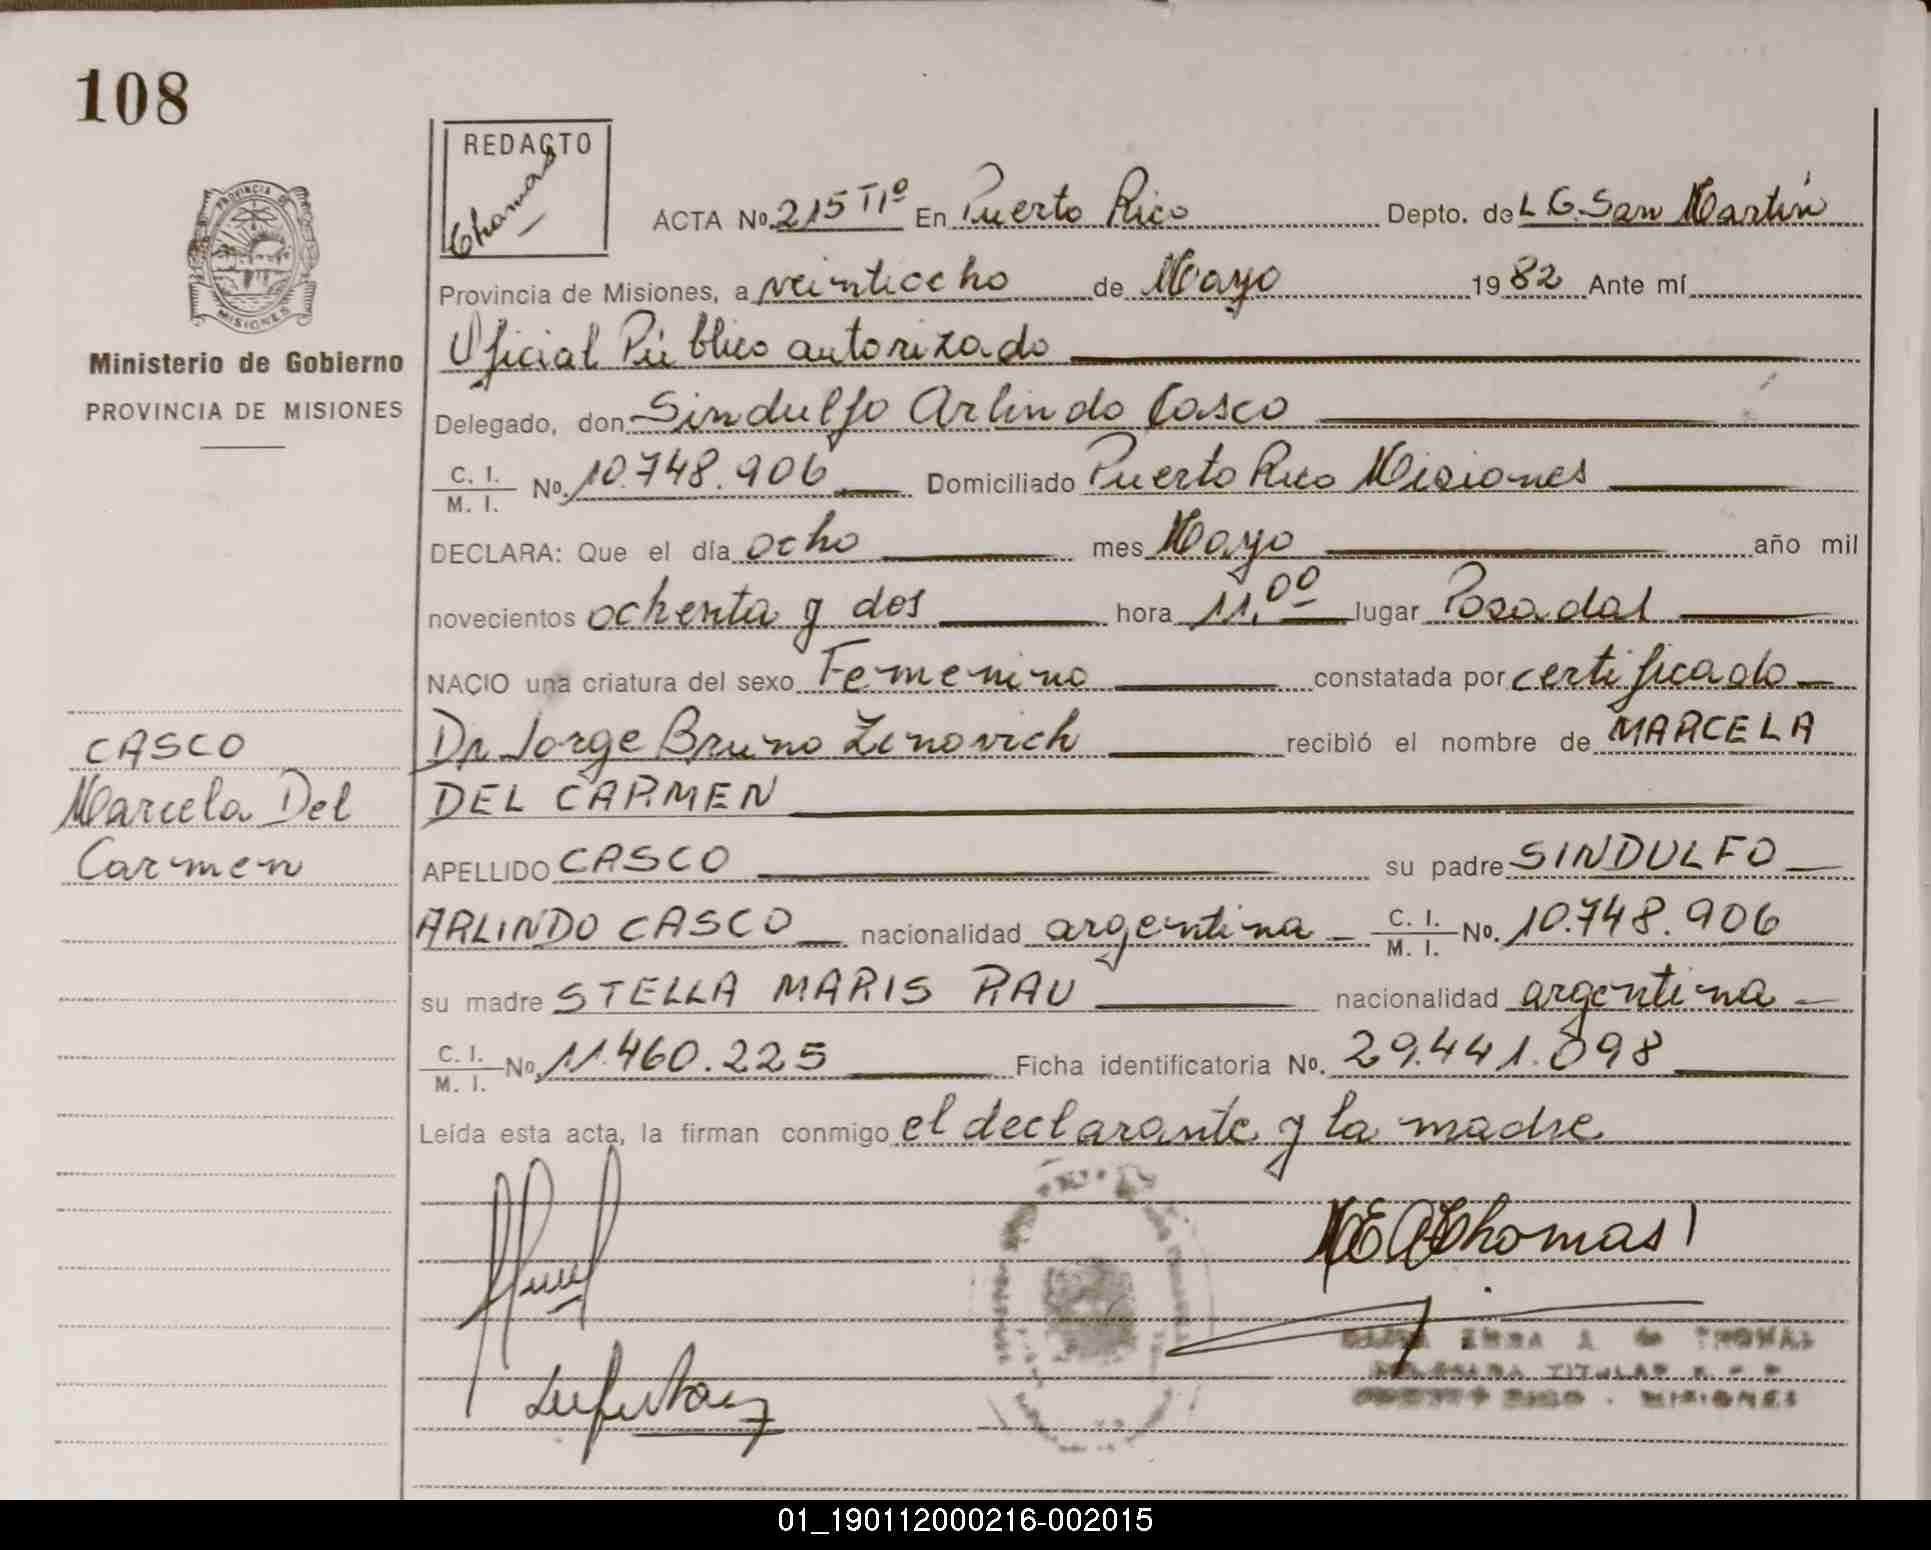 108
REDACTO
Thomas
PROVINCIA DE
MISIONES
Ministerio de Gobierno
PROVINCIA DE MISIONES
ACTA No. 215 Tiº En Puerto Rico Depto. de L G. San Martín
Provincia de Misiones, a veintiocho de Mayo 1982 Ante mí
Oficial Público autorizado
Delegado, don Sindulfo Arlindo Casco
C. I. / M. I. No. 10.748.906 Domiciliado Puerto Rico Misiones
DECLARA: Que el día ocho mes Mayo año mil
novecientos ochenta y dos hora 11,00 lugar Posadas
NACIO una criatura del sexo Femenino constatada por certificado
Dr Jorge Bruno Zenovich recibió el nombre de MARCELA
DEL CARMEN
CASCO
Marcela Del
Carmen
APELLIDO CASCO su padre SINDULFO
ARLINDO CASCO nacionalidad argentina C. I. / M. I. No. 10.748.906
su madre STELLA MARIS RAU nacionalidad argentina
C. I. / M. I. No. 11.460.225 Ficha identificatoria No. 29.441.098
Leída esta acta, la firman conmigo el declarante y la madre
Thomas
de THOMAS
TITULAR
MISIONES
01_190112000216-002015